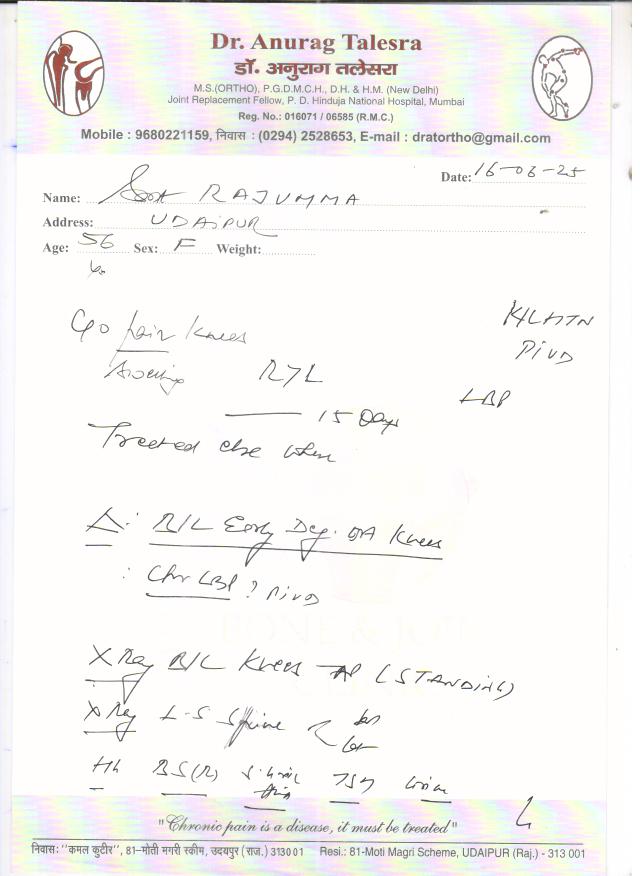 Dr. Anurag Talesra
डॉ. अनुराग तलेसरा
M.S.(ORTHO), P.G.D.M.C.H., D.H. & H.M. (New Delhi)
Joint Replacement Fellow, P. D. Hinduja National Hospital, Mumbai
Reg. No.: 016071 / 06585 (R.M.C.)
Mobile : 9680221159, निवास : (0294) 2528653, E-mail : dratortho@gmail.com
Date: 16-06-25
Name: RAJUMMA
Address: UDAIPUR
Age: 56 Sex: F Weight:
C/o pain Knees
Swelling R>L
15 Days
K/C HTN
PIVD
LBP
Treated else where
Δ: B/L Early Deg. OA Knees
: Chr LBP ? PIVD
X Ray B/L Knees AP (STANDING)
X Ray L-S Spine
Hb BS(R) TSH
"Chronic pain is a disease, it must be treated"
निवास: "कमल कुटीर", 81-मोती मगरी स्कीम, उदयपुर (राज.) 313001 Resi.: 81-Moti Magri Scheme, UDAIPUR (Raj.) - 313 001